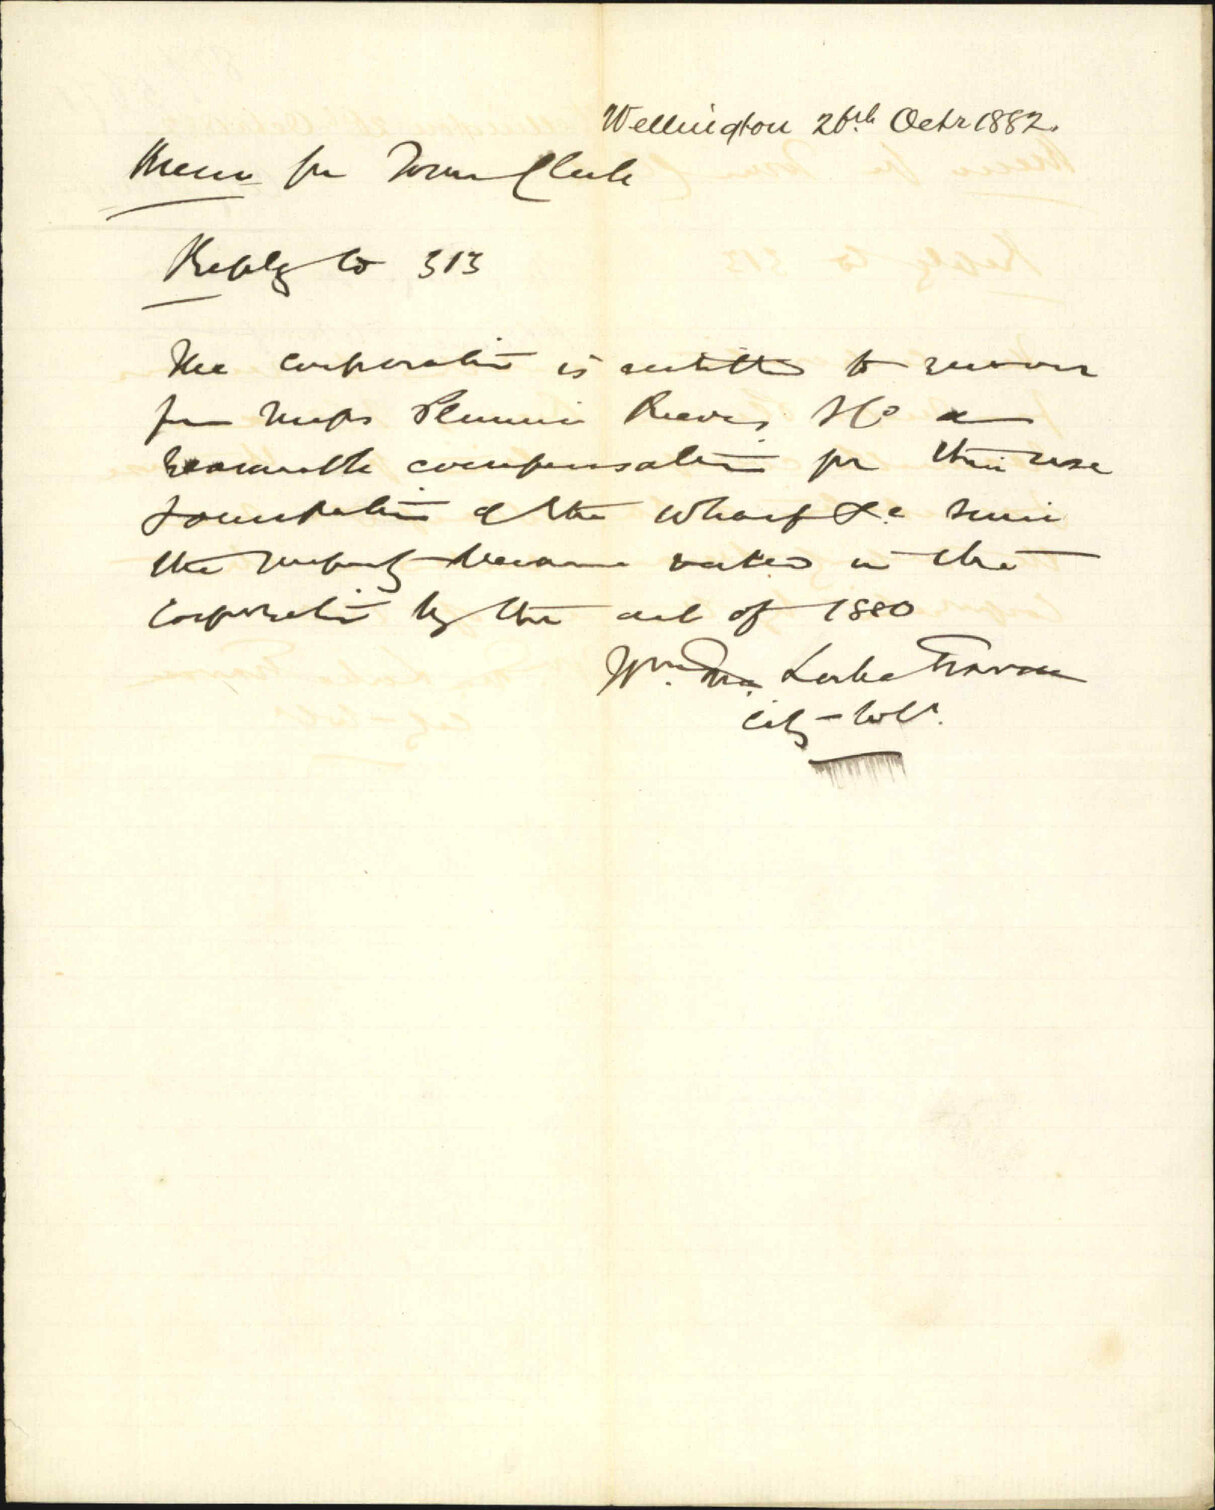 Wellington 26th Octr 1882.
Memo for Town Clerk
Reply to 313
The corporation is entitled to recover
from Messrs Plimmer Reeves & Co a
reasonable compensation for their use
& occupation of the Wharf &c since
the property became vested in the
Corporation by the act of 1880
Wm Locke Travers
City – Solr.